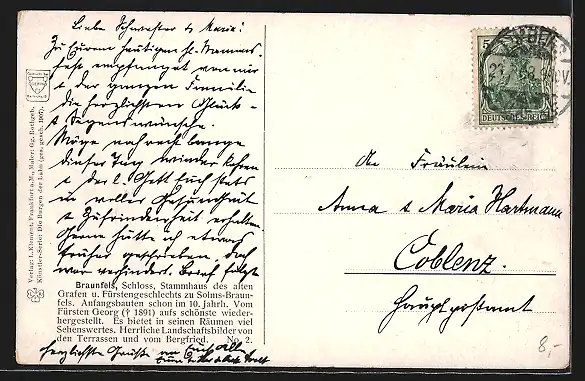 Liebe Schwester & Marie!
Zu Eurem heutigen hl. Namens-
fest empfanget von mir
& der ganzen Familie
die herzlichsten Glück-
& Segenswünsche.
Möge noch recht lange
dieser Tag wiederkehren
& der l. Gott Euch stets
in voller Gesundheit
& Zufriedenheit erhalten.
Gerne hätte ich etwas
früher geschrieben, doch
war verhindert. Brief folgt
Braunfels, Schloss, Stammhaus des alten
Grafen u. Fürstengeschlechts zu Solms-Braun-
fels. Anfangsbauten schon im 10. Jahrh. Vom
Fürsten Georg († 1891) aufs schönste wieder-
hergestellt. Es bietet in seinen Räumen viel
Sehenswertes. Herrliche Landschaftsbilder von
den Terrassen und vom Bergfried. No. 2.
herzlichste Grüße an Euch All
Verlag: L. Klement, Frankfurt a. M., Maler: Gg. Rothgeb.
Künstler-Serie: Die Burgen der Lahn (ges. gesch. 1907).
5
DEUTSCHES REICH
An Fräulein
Anna & Maria Hartmann
Coblenz.
Hauptpostamt
8,-